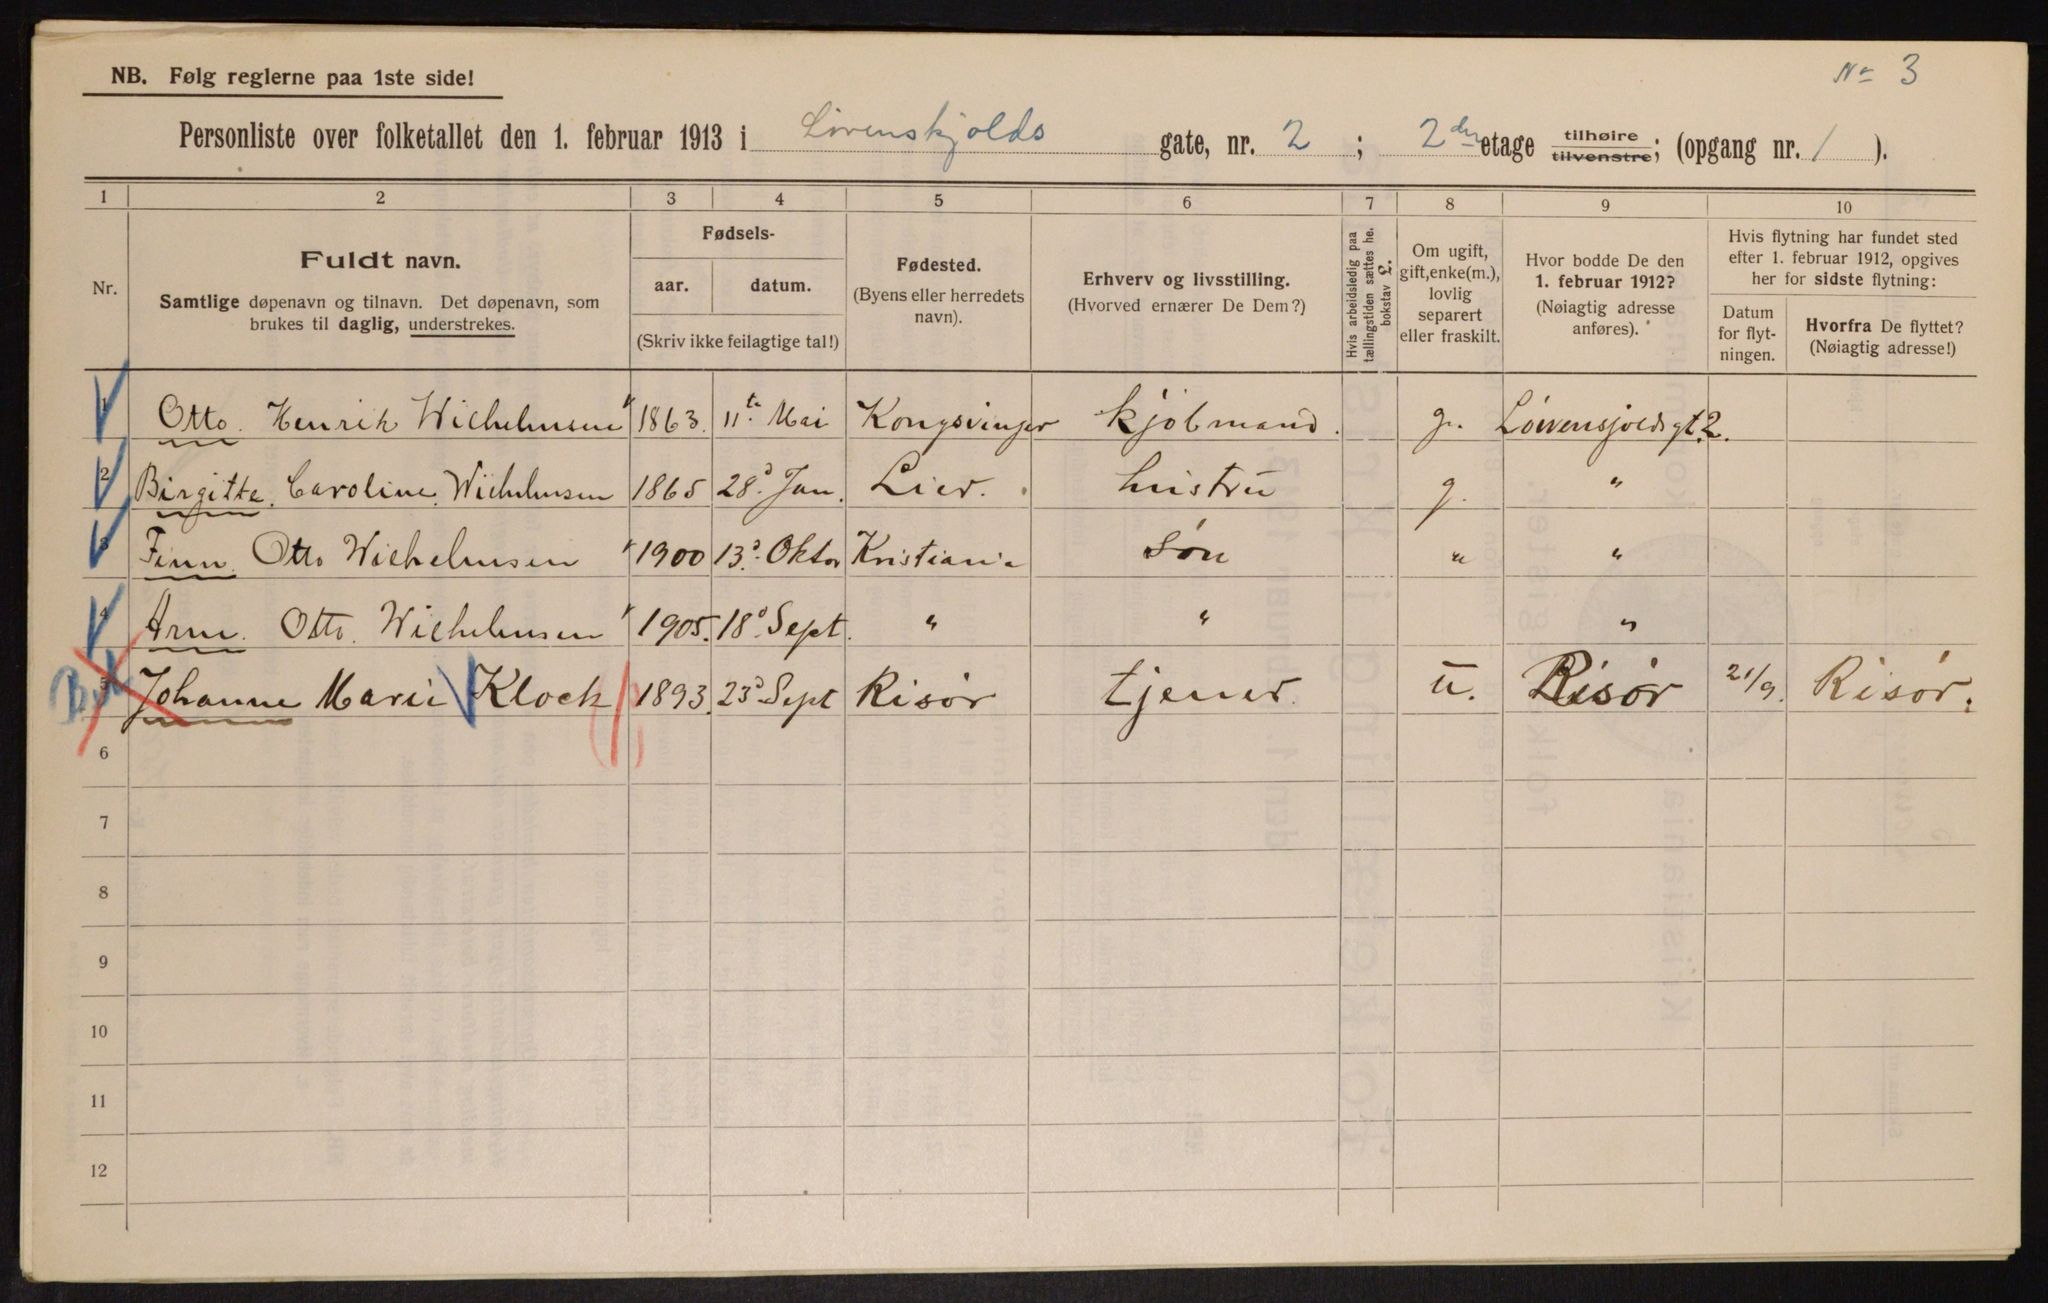 NB. Følg reglerne paa 1ste side!
No 3
Personliste over folketallet den 1. februar 1913 i Lövenskjolds gate, nr. 2 ; 2den etage tilhøire tilvenstre; (opgang nr. 1 ).
1 2 3 4 5 6 7 8 9 10
Nr.
Fuldt navn.
Samtlige døpenavn og tilnavn. Det døpenavn, som
brukes til daglig, understrekes.
Fødsels-
aar. datum.
(Skriv ikke feilagtige tal!)
Fødested.
(Byens eller herredets
navn).
Erhverv og livsstilling.
(Hvorved ernærer De Dem?)
Hvis arbeidsledig paa
tællingstiden sættes he.
bokstav £.
Om ugift,
gift, enke(m.),
lovlig
separert
eller fraskilt.
Hvor bodde De den
1. februar 1912?
(Nøiagtig adresse
anføres).
Hvis flytning har fundet sted
efter 1. februar 1912, opgives
her for sidste flytning:
Datum
for flyt-
ningen.
Hvorfra De flyttet?
(Nøiagtig adresse!)
1 Otto. Henrik Wilhelmsen 1863. 11te Mai Kongsvinger kjöbmand. g. Lövensjoldsgt. 2.
2 Birgitte. Caroline. Wilhelmsen 1865 28d. Jan. Lier. hustru g. "
3 Finn. Otto Wilhelmsen 1900 13d. Oktor Kristiania søn " "
4 Arne. Otto. Wilhelmsen 1905. 18d. Sept. " " "
5 Johanne Marie Klock 1893. 23d. Sept Risör tjener. u. Risør 21/9. Risør.
6
7
8
9
10
11
12